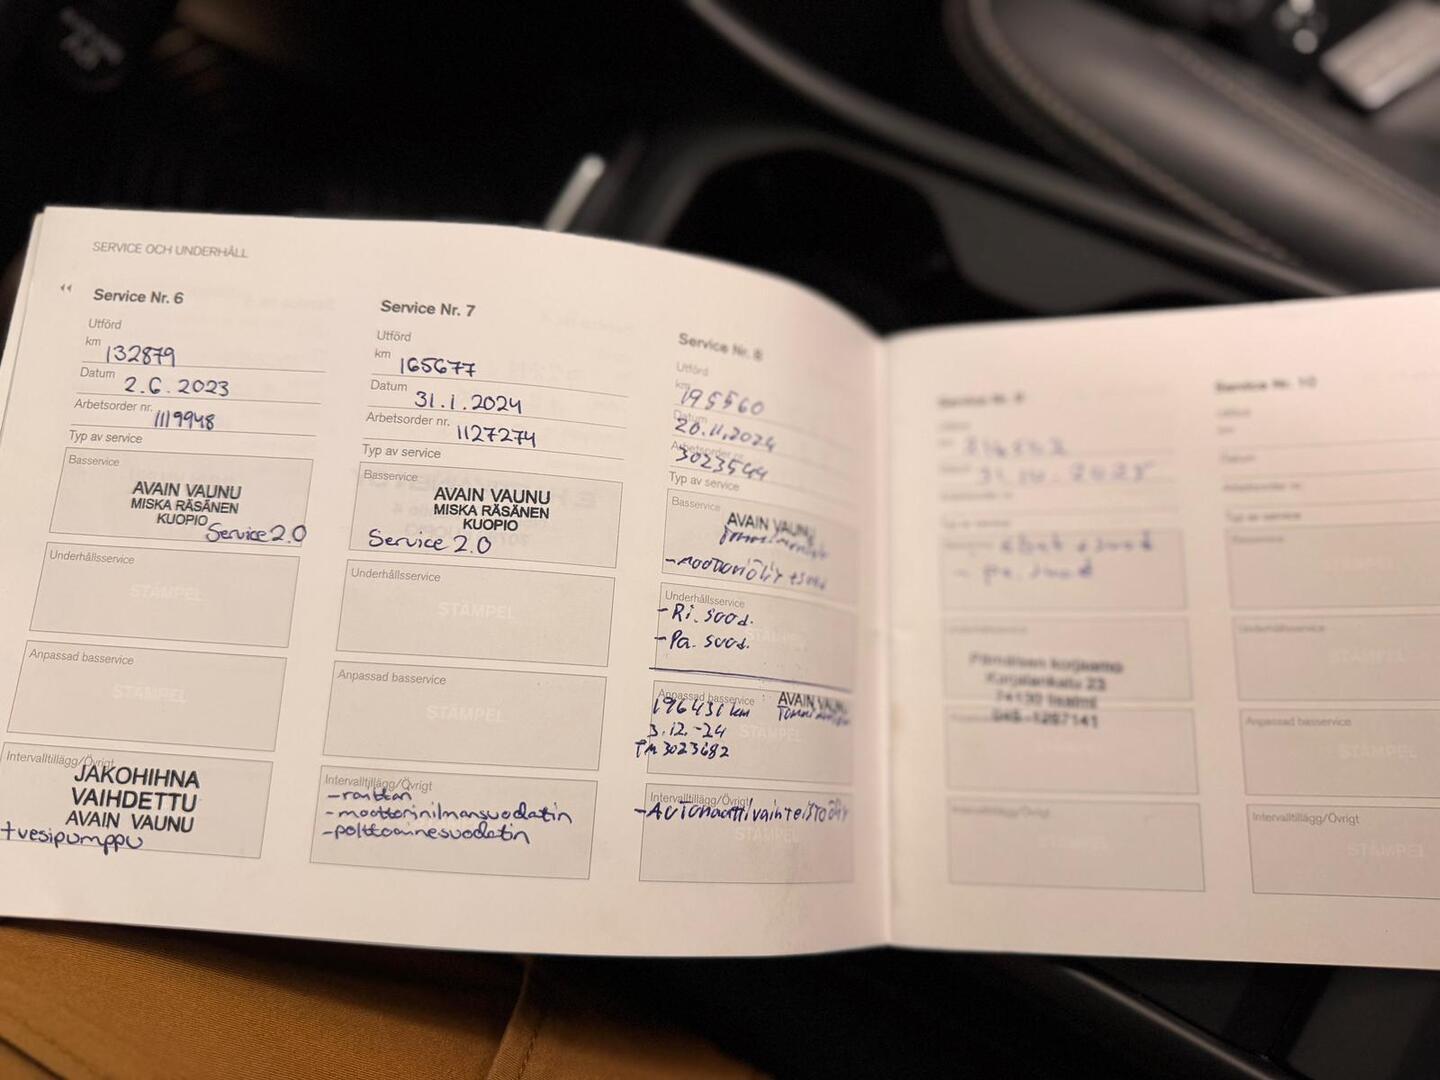 SERVICE OCH UNDERHÅLL
Service Nr. 6
Utförd
km 132879
Datum 2.6.2023
Arbetsorder nr. 1119948
Typ av service
Basservice
AVAIN VAUNU
MISKA RÄSÄNEN
KUOPIO
Service 2.0
Underhållsservice
STÄMPEL
Anpassad basservice
STÄMPEL
Intervalltillägg/Övrigt
JAKOHIHNA
VAIHDETTU
AVAIN VAUNU
+vesipumppu
Service Nr. 7
Utförd
km 165677
Datum 31.1.2024
Arbetsorder nr. 1127274
Typ av service
Basservice
AVAIN VAUNU
MISKA RÄSÄNEN
KUOPIO
Service 2.0
Underhållsservice
STÄMPEL
Anpassad basservice
STÄMPEL
Intervalltillägg/Övrigt
-raittan
-moottorinilmansuodatin
-polttoainesuodatin
Service Nr. 8
Utförd
km 195560
Datum 20.11.2024
Arbetsorder nr. 3023544
Typ av service
Basservice
AVAIN VAUNU
-moottoriöljy +suod
Underhållsservice
-Ri. suod.
-Pa. suod.
Anpassad basservice
AVAIN VAUNU
196431 km
3.12.-24
TM3023682
STÄMPEL
Intervalltillägg/Övrigt
-Automaattivaihteistoöljy
STÄMPEL
Service Nr. 9
31.10.2025
- pa. suod
Underhållsservice
Korjalankatu 23
74130 Iisalmi
045-1267141
Service Nr. 10
Utförd
km
Datum
Arbetsorder nr.
Typ av service
Basservice
STÄMPEL
Underhållsservice
STÄMPEL
Anpassad basservice
STÄMPEL
Intervalltillägg/Övrigt
STÄMPEL